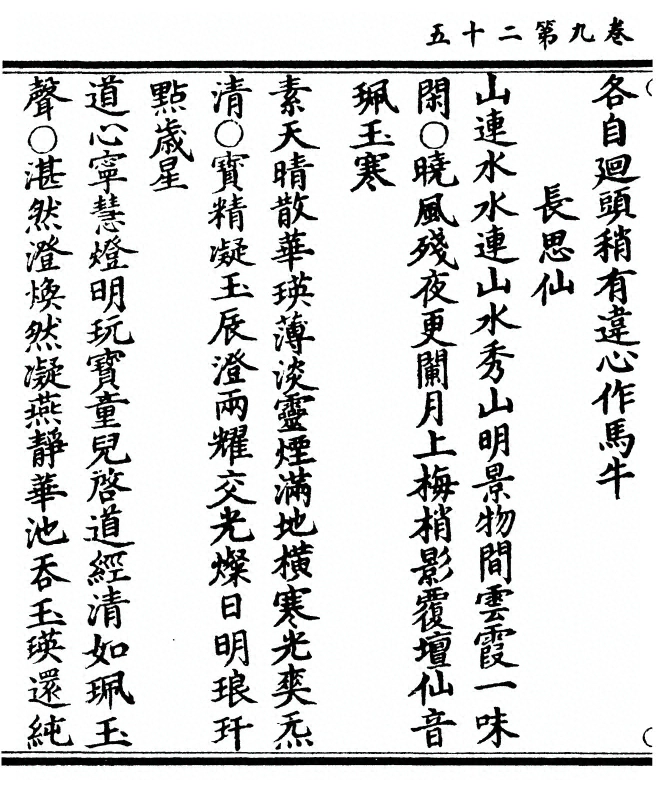 卷九第二十五
各自廻頭稍有違心作馬牛
長思仙
山連水水連山水秀山明景物間雲霞一味
閑○曉風殘夜更闌月上梅梢影覆壇仙音
珮玉寒
素天晴散華瑛薄淡靈煙滿地橫寒光爽炁
清○寶精凝玉辰澄兩耀交光燦日明琅玕
點歲星
道心寧慧燈明玩寶童兒啓道經清如珮玉
聲○湛然澄煥然凝燕靜華池吞玉瑛還純